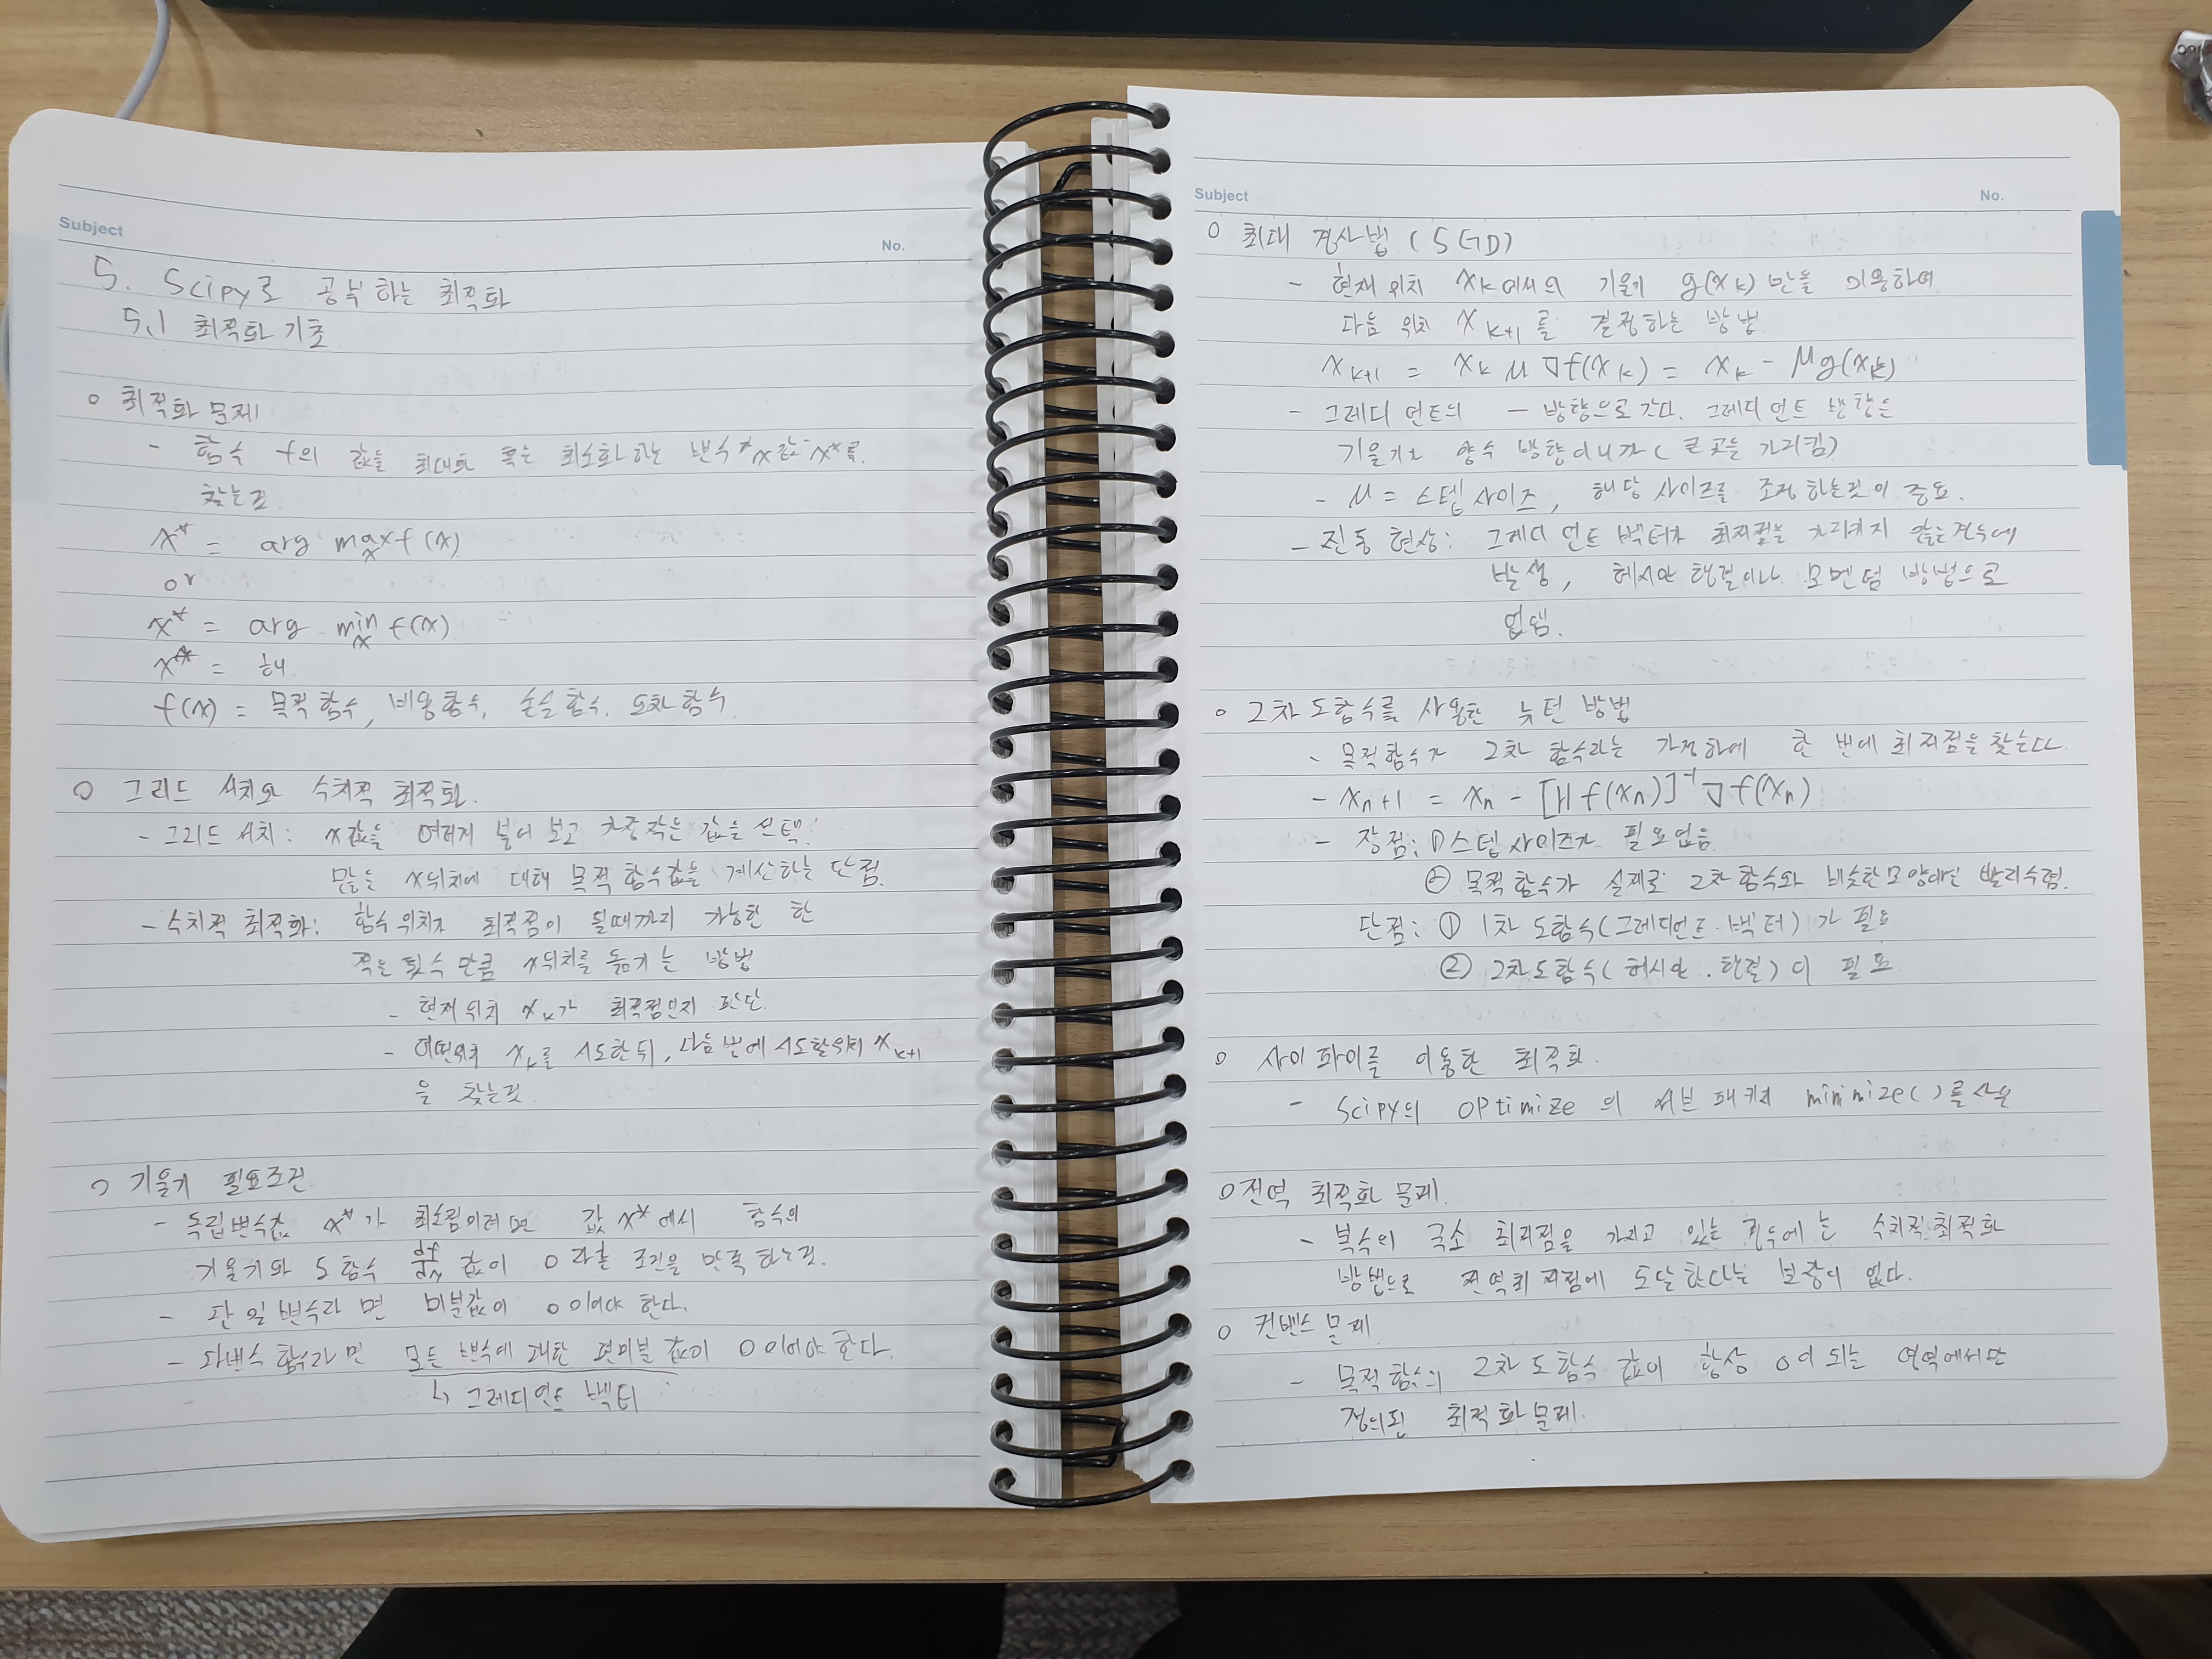 Subject
No.
5. Scipy로 공부하는 최적화
5.1 최적화 기초
○ 최적화 문제
- 함수 f의 값을 최대화 혹은 최소화하는 변수 x값 x*를
찾는것
x* = arg max x f(x)
or
x* = arg min x f(x)
x* = 해
f(x) = 목적함수, 비용함수, 손실함수, 오차함수
○ 그리드 서치와 수치적 최적화
- 그리드 서치 : x값을 여러개 넣어 보고 가장작은 값을 선택.
많은 x위치에 대해 목적 함수값을 계산하는 단점.
- 수치적 최적화 : 함수위치가 최적점이 될때까지 가능한 한
적은 횟수 만큼 x위치를 옮기는 방법
- 현재위치 xk가 최적점인지 판단
- 어떤위치 xk를 시도한뒤, 다음번에 시도할위치 xk+1
을 찾는것
○ 기울기 필요조건
- 독립변수값 x*가 최소점이려면 값 x*에서 함수의
기울기와 도함수 df/dx 값이 0 라는 조건을 만족 하는것.
- 단일 변수라면 미분값이 0이어야 한다.
- 다변수 함수라면 모든 변수에 대한 편미분 값이 0이어야 한다.
↳ 그레디언트 벡터
Subject
No.
○ 최대 경사법 (SGD)
- 현재 위치 xk에서의 기울기 g(xk)만을 이용하여
다음 위치 xk+1를 결정하는 방법
xk+1 = xk μ ∇f(xk) = xk - μg(xk)
- 그레디언트의 - 방향으로 간다. 그레디언트 방향은
기울기가 양수 방향이니까 (큰 곳을 가리킴)
- μ = 스텝 사이즈, 해당 사이즈를 조정하는것이 중요.
- 진동 현상 : 그레디언트 벡터가 최저점을 가리키지 않는경우에
발생, 헤시안 행렬이나 모멘텀 방법으로
없앰.
○ 2차 도함수를 사용한 뉴턴 방법
- 목적함수가 2차 함수라는 가정하에 한 번에 최저점을 찾는다.
- xn+1 = xn - [Hf(xn)]⁻¹ ∇f(xn)
- 장점 : ① 스텝 사이즈가 필요없음
② 목적 함수가 실제로 2차 함수와 비슷한모양에선 빨리수렴.
단점 : ① 1차 도함수(그레디언트 벡터)가 필요
② 2차도함수(헤시안 행렬)이 필요
○ 사이파이를 이용한 최적화
- Scipy의 optimize 의 서브 패키지 minimize()를사용
○ 전역 최적화 문제
- 복수의 국소 최저점을 가지고 있는 경우에는 수치적최적화
방법으로 전역최저점에 도달한다는 보장이 없다.
○ 컨벡스 문제
- 목적 함수의 2차 도함수 값이 항상 0이 되는 영역에서만
정의된 최적화문제.